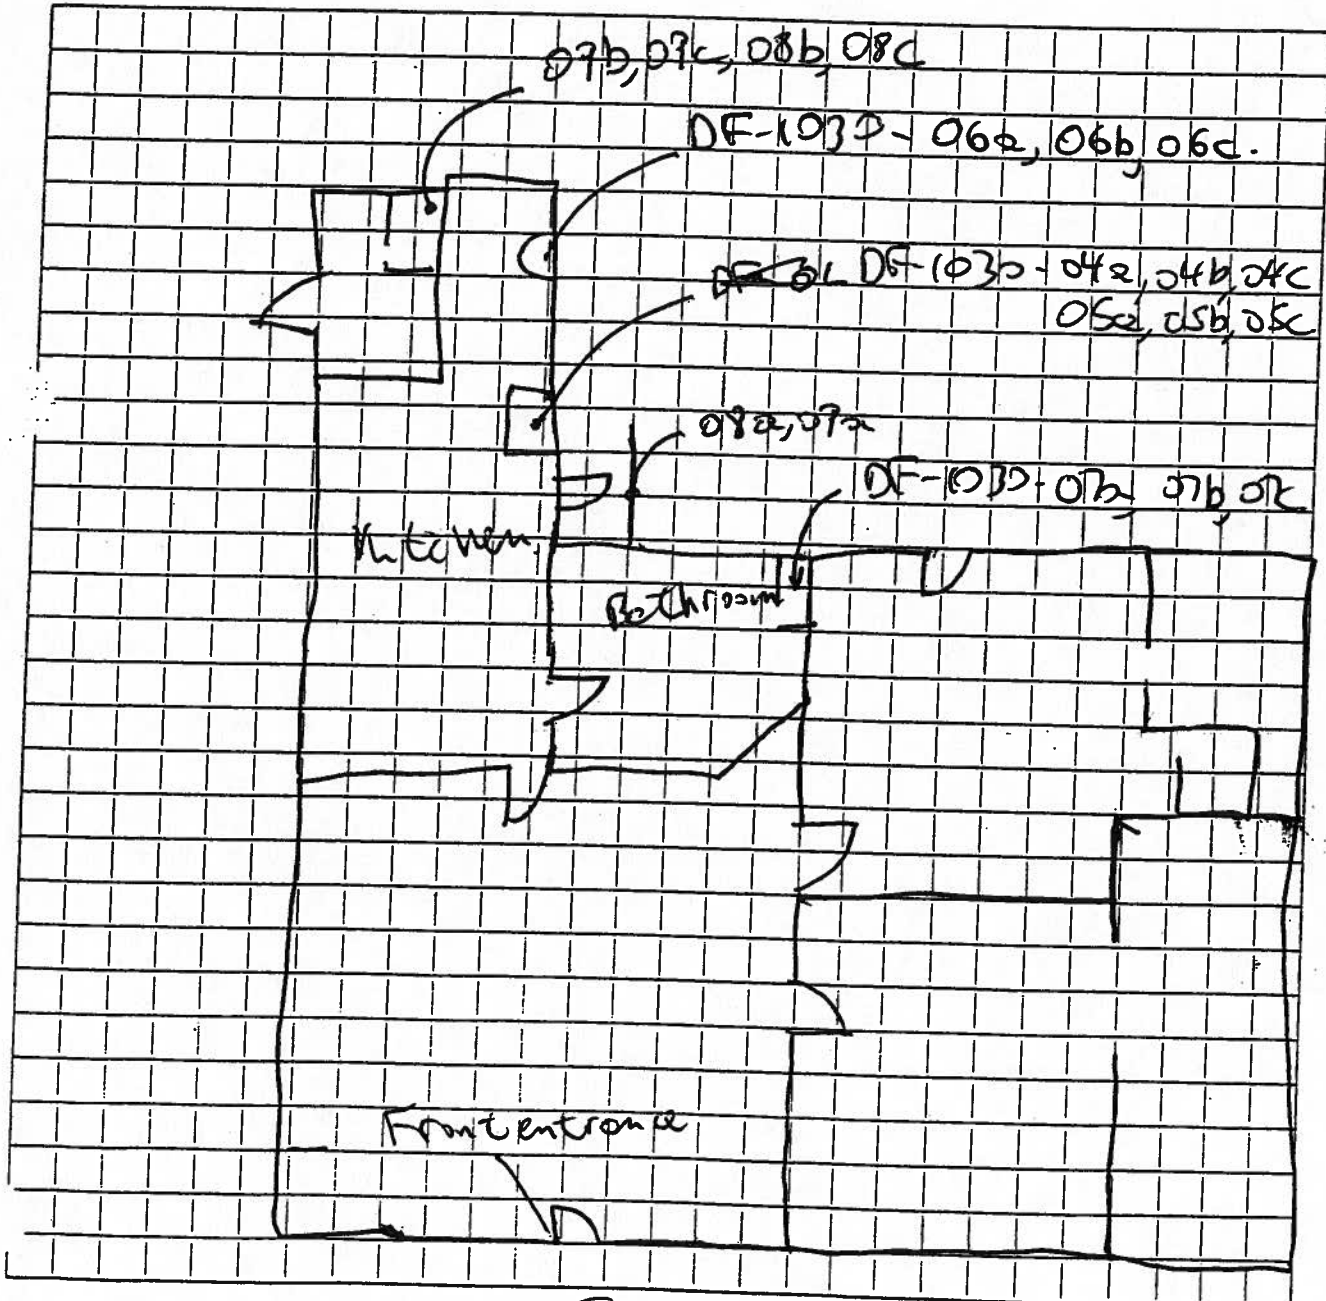 07b, 07c, 08b, 08c
DF-1030 - 06a, 06b, 06c.
DF-1030 - 04a, 04b, 04c
05a, 05b, 05c
08a, 07a
DF-1030 - 07a, 07b, 07c
Kitchen
Bathroom
Front entrance